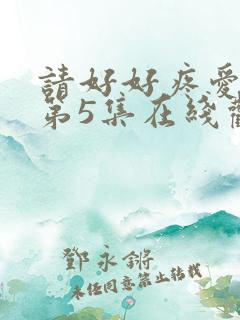 請好好疼愛
第5集在綫
鄧永鏘
未經同意禁止轉載